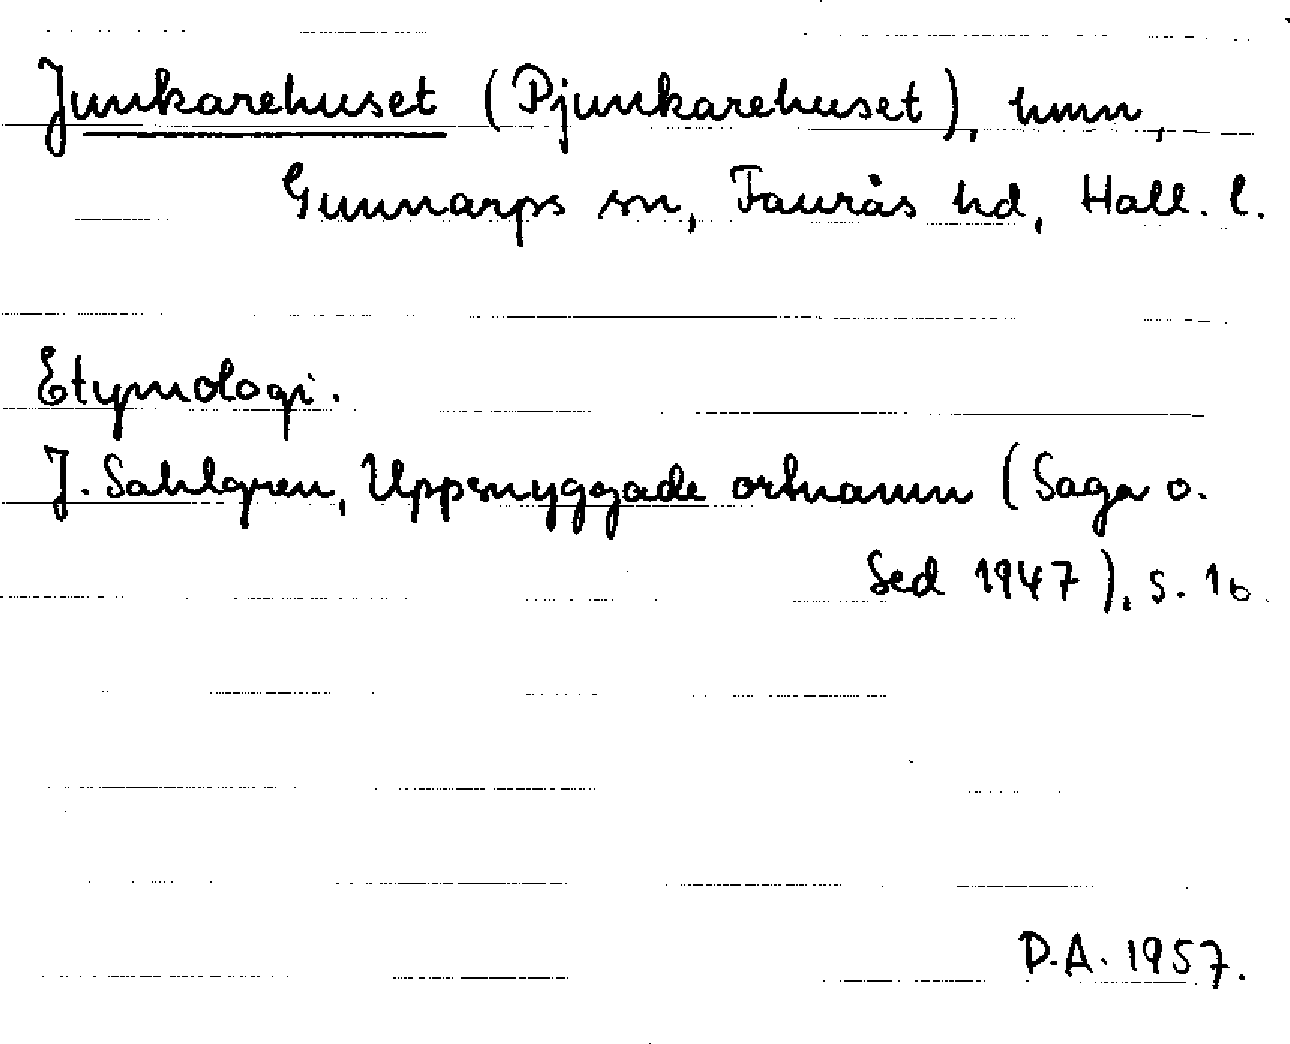 Junkarehuset (Djunkarehuset), hmn,
Gunnarps sn, Faurås hd, Hall. l.
Etymologi.
J. Sahlgren, Uppsnyggade ortnamn (Saga o.
Sed 1947), s. 16
D.A. 1957.